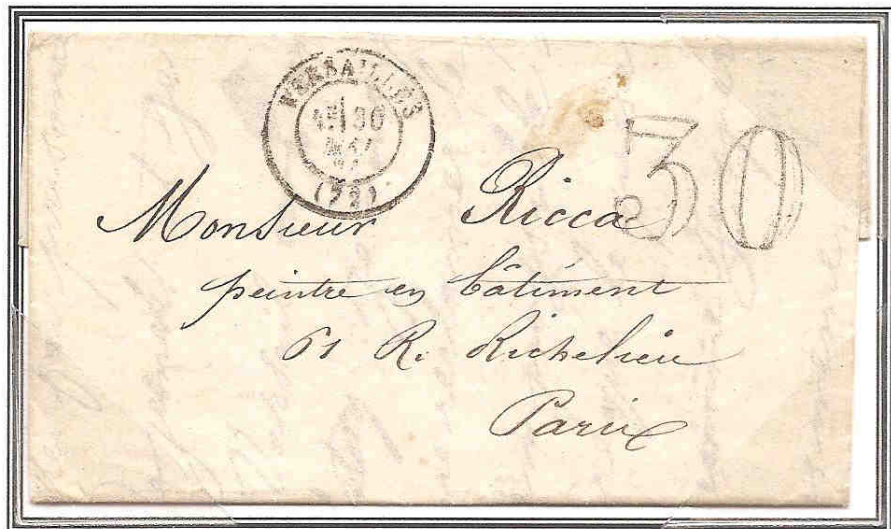 VERSAILLES
30
MAI
(72)
30
Monsieur Ricca
peintre en bâtiment
61 R. Richelieu
Paris